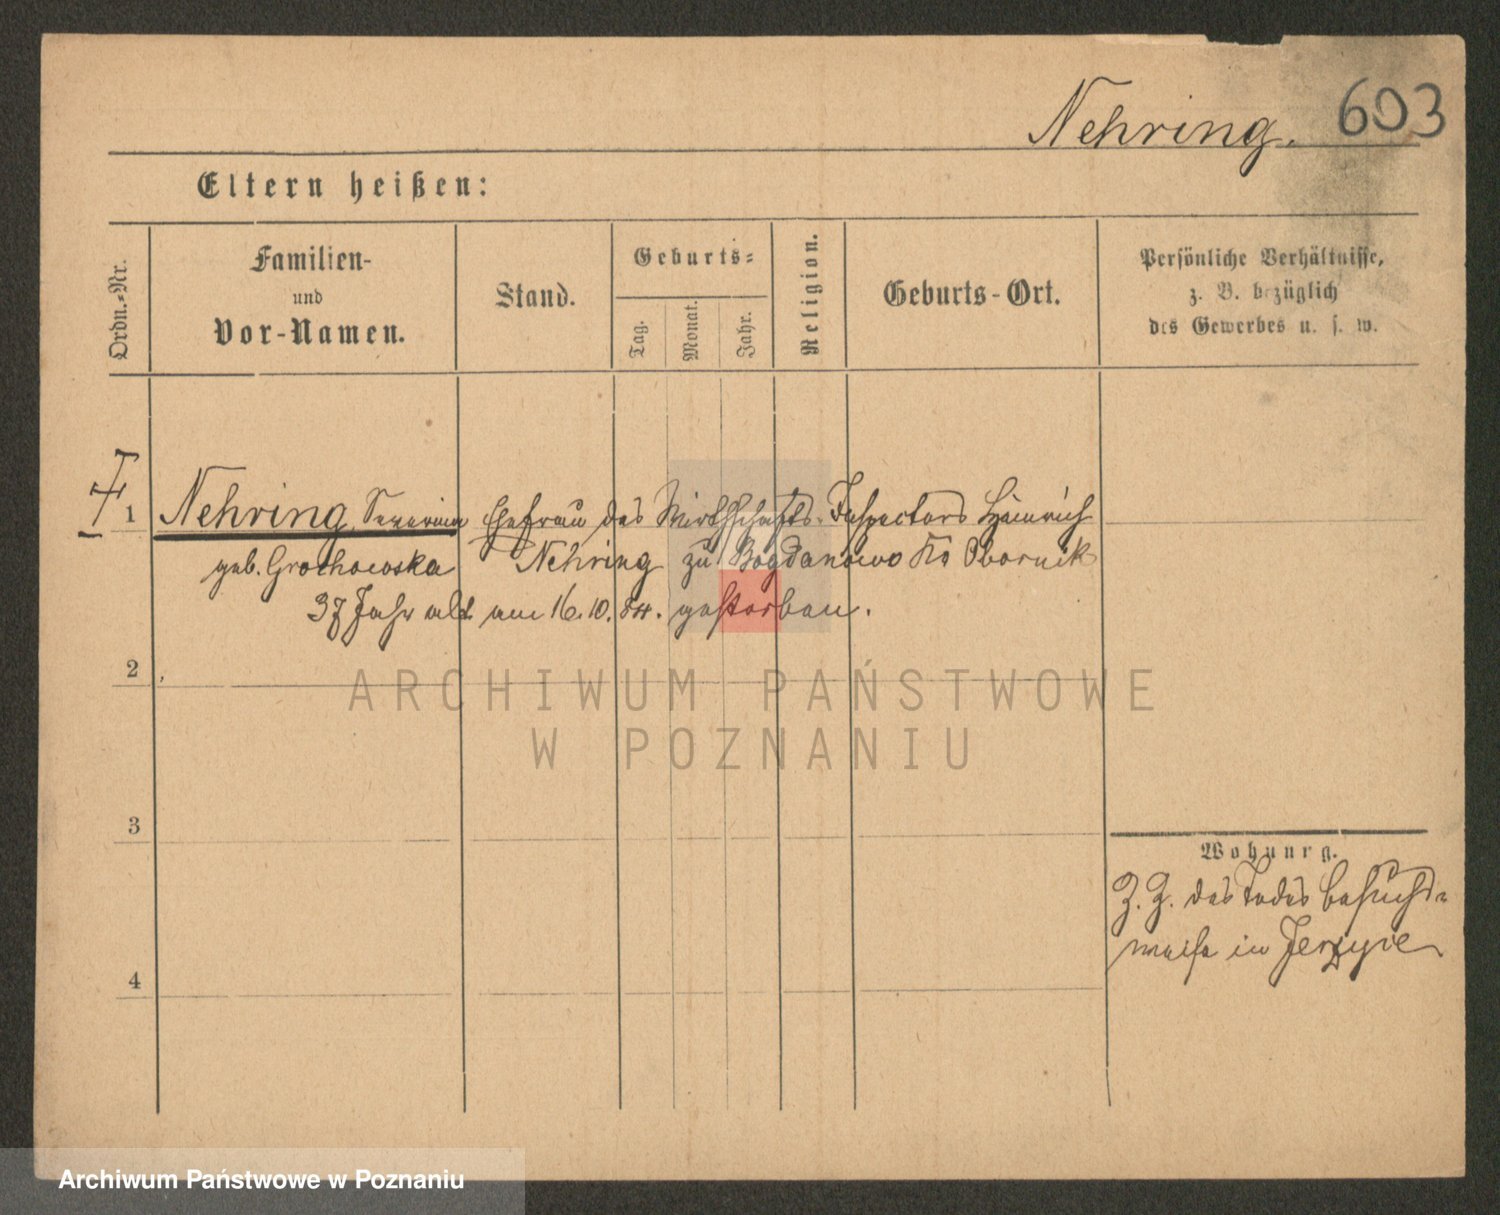 Nehring. 603
Eltern heißen:
Ordn.-Nr.
Familien-
und
Vor-Namen.
Stand.
Geburts-
Tag.
Monat.
Jahr.
Religion.
Geburts-Ort.
Persönliche Verhältnisse,
z. B. bezüglich
des Gewerbes u. s. w.
1 Nehring, Severina Ehefrau des Wirthschafts-Inspectors Heinrich
geb. Grochowska Nehring zu Bogdanowo Krs Obornik
37 Jahr alt am 16.10.84. gestorben.
2
ARCHIWUM PAŃSTWOWE
W POZNANIU
3
Wohnung.
Z. Z. des Todes besuchs-
weise in Jerzyce
4
Archiwum Państwowe w Poznaniu